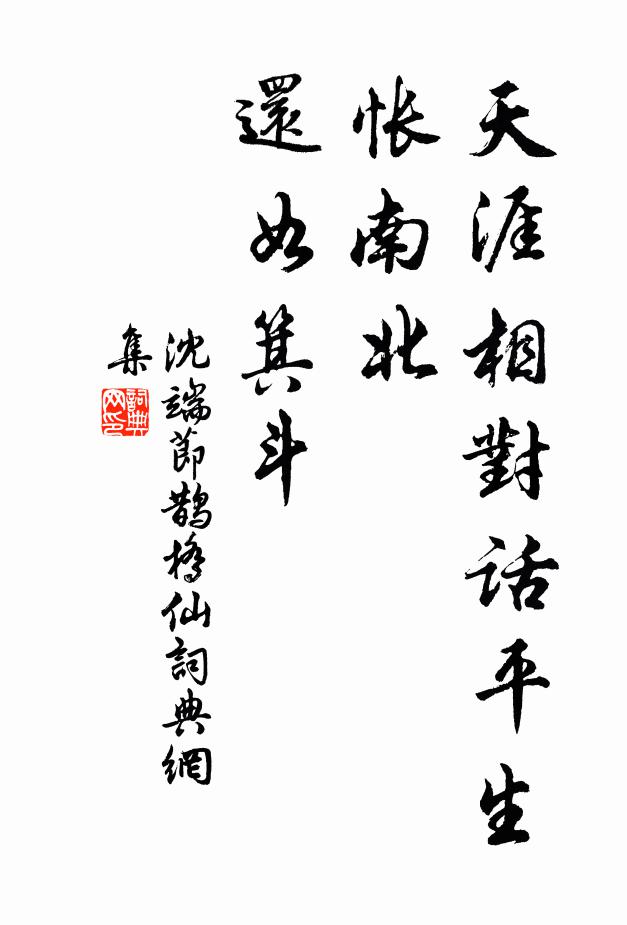 天涯相對話平生
悵南北
還如箕斗
沈端節鵲橋仙詞典網
集
詞典
网印